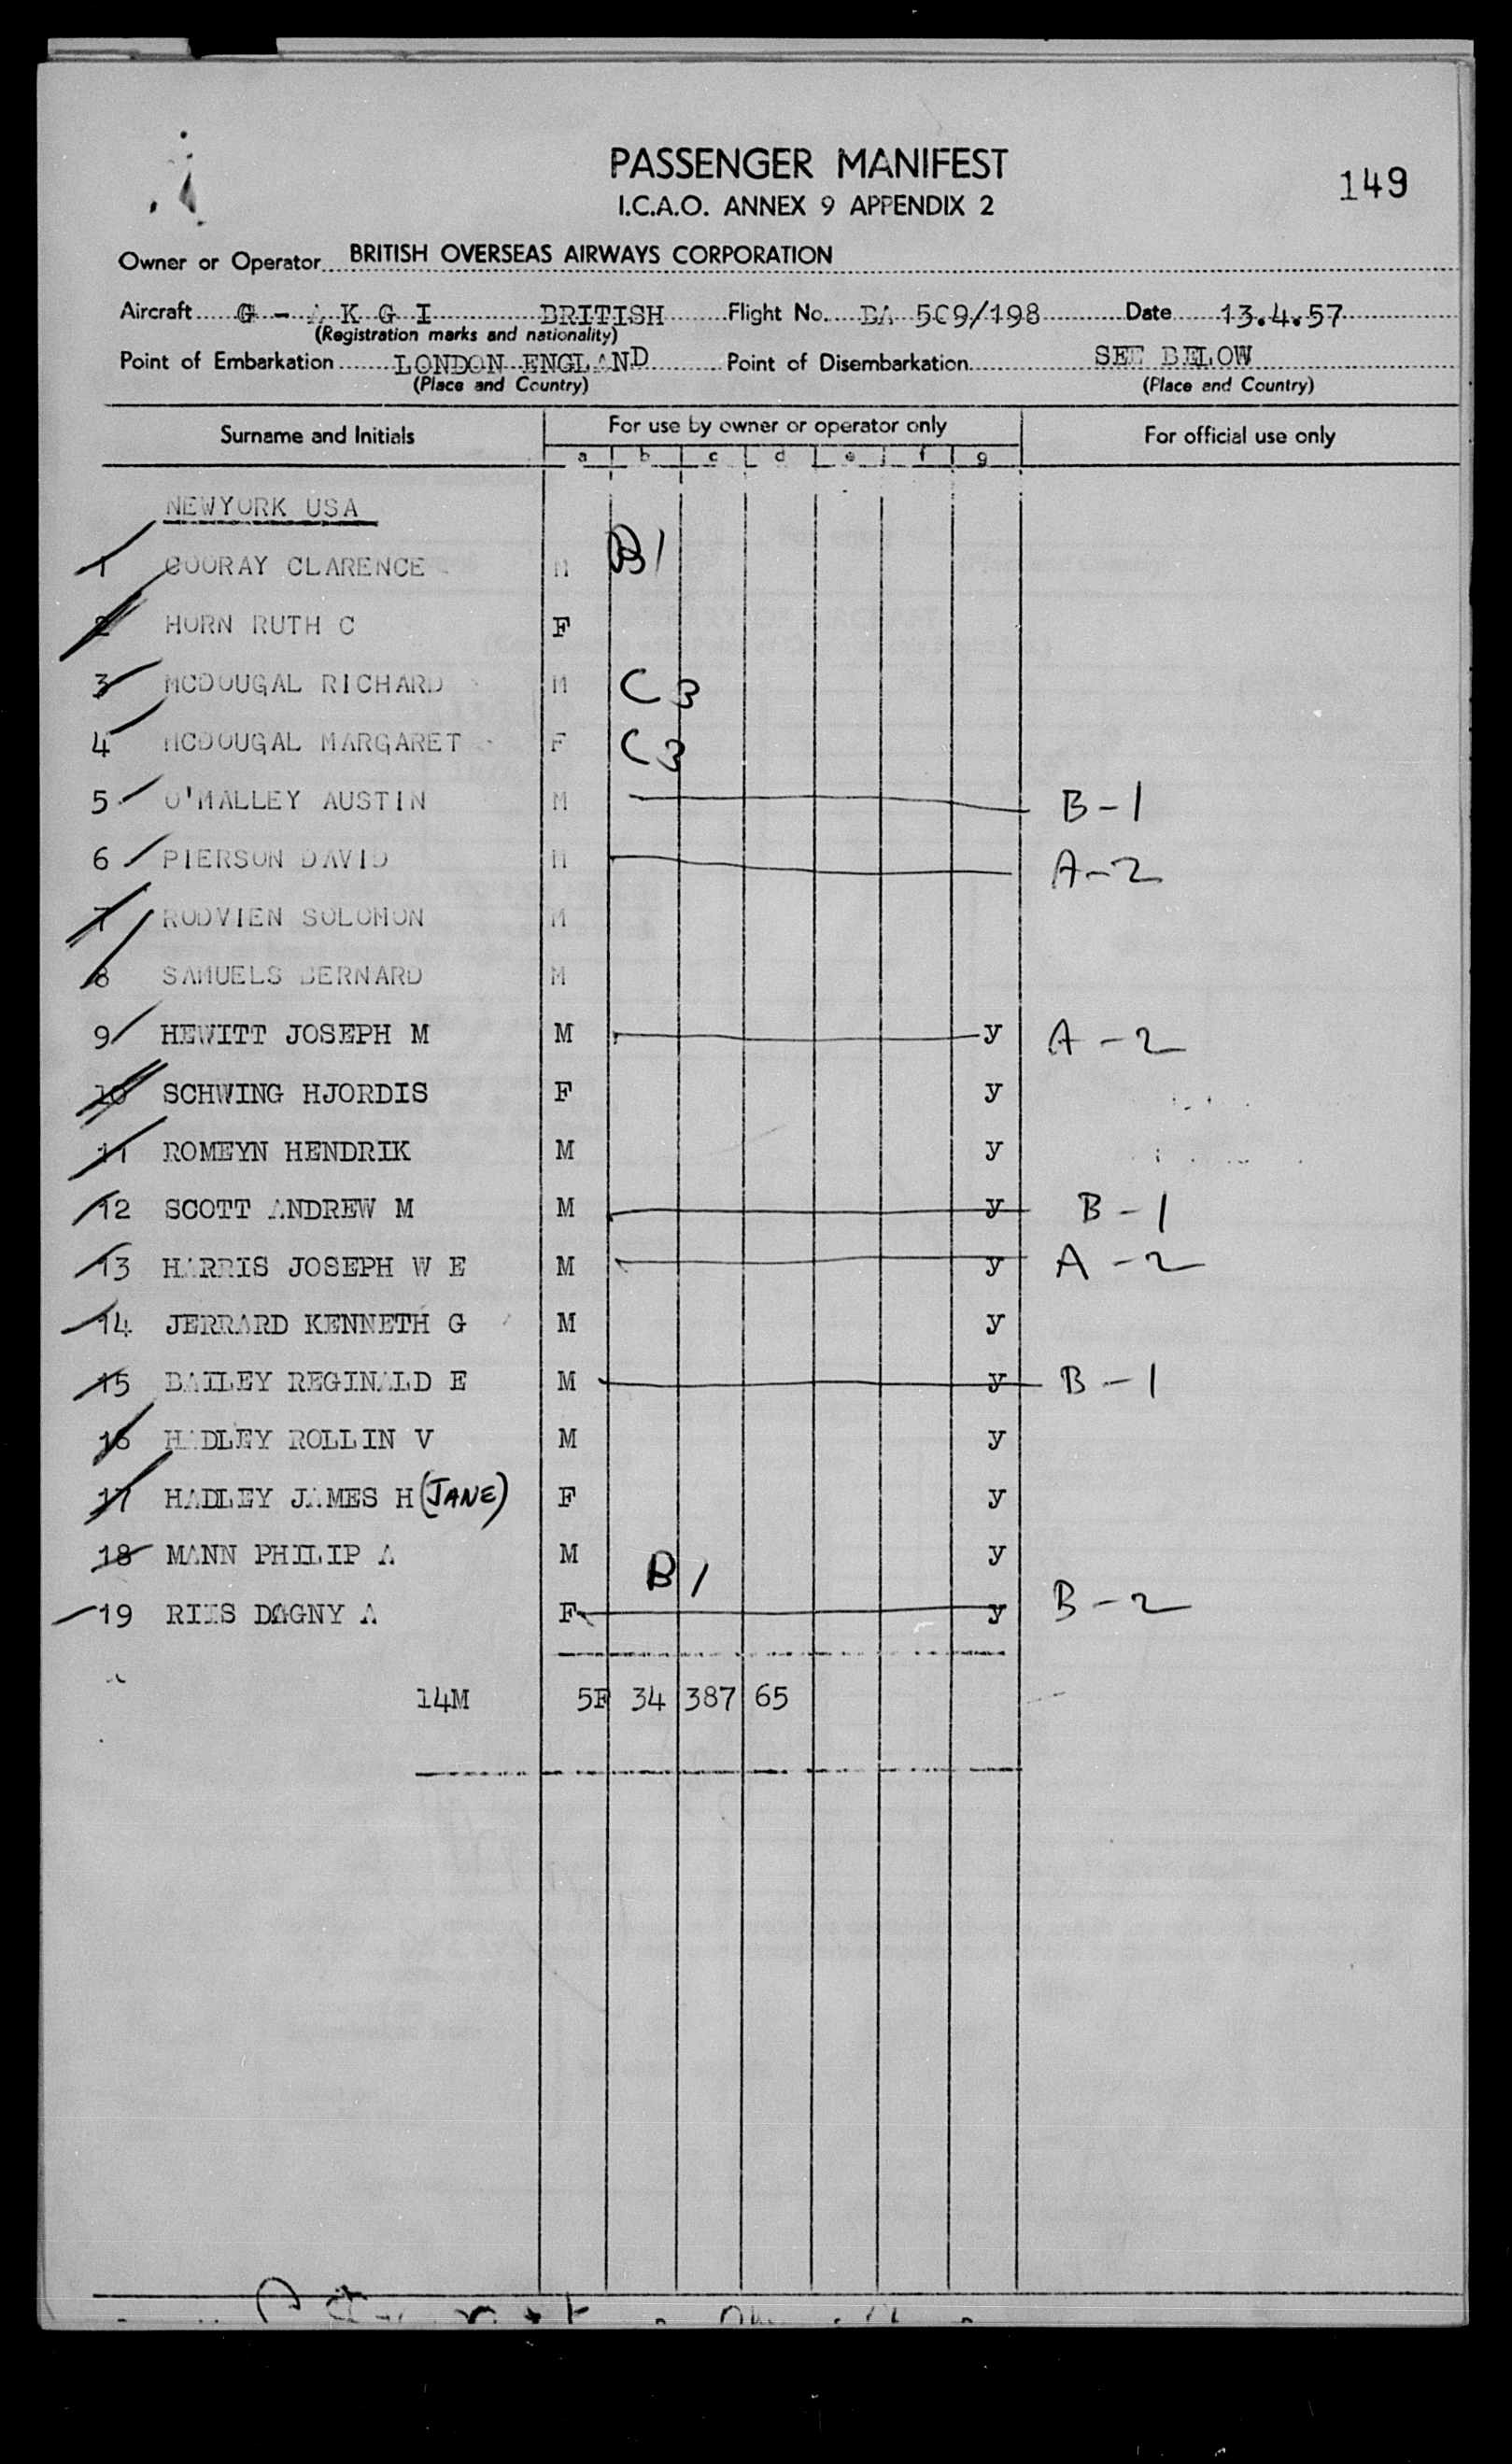 PASSENGER MANIFEST
149
I.C.A.O. ANNEX 9 APPENDIX 2
Owner or Operator BRITISH OVERSEAS AIRWAYS CORPORATION
Aircraft G - A K G I BRITISH Flight No. BA 509/198 Date 13.4.57
(Registration marks and nationality)
Point of Embarkation LONDON ENGLAND Point of Disembarkation SEE BELOW
(Place and Country) (Place and Country)
Surname and Initials For use by owner or operator only For official use only
a b c d e f g
NEWYORK USA
1 COORAY CLARENCE M B1
2 HORN RUTH C F
3 MCDOUGAL RICHARD M C3
4 MCDOUGAL MARGARET F C3
5 O'MALLEY AUSTIN M B-1
6 PIERSON DAVID M A-2
7 RODVIEN SOLOMON M
8 SAMUELS BERNARD M
9 HEWITT JOSEPH M M y A-2
10 SCHWING HJORDIS F y
11 ROMEYN HENDRIK M y
12 SCOTT ANDREW M M y B-1
13 HARRIS JOSEPH W E M y A-2
14 JERRARD KENNETH G M y
15 BAILEY REGINALD E M y B-1
16 HADLEY ROLLIN V M y
17 HADLEY JAMES H (JANE) F y
18 MANN PHILIP A M B1 y
19 RIIS DAGNY A F y B-2
14M 5F 34 387 65